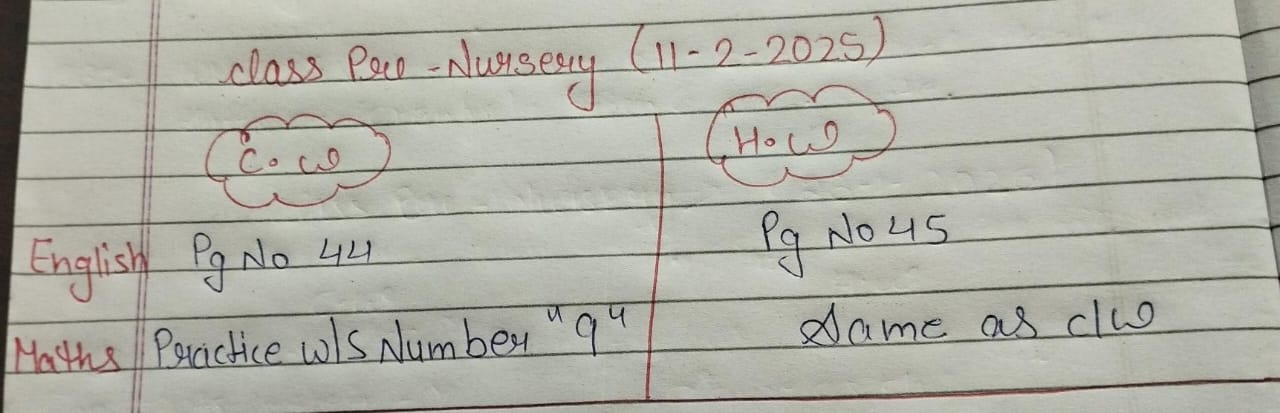 class Pre-Nursery (11-2-2025)
C.W H.W
English Pg No 44 Pg No 45
Maths Practice w/s Number "9" Same as c/w